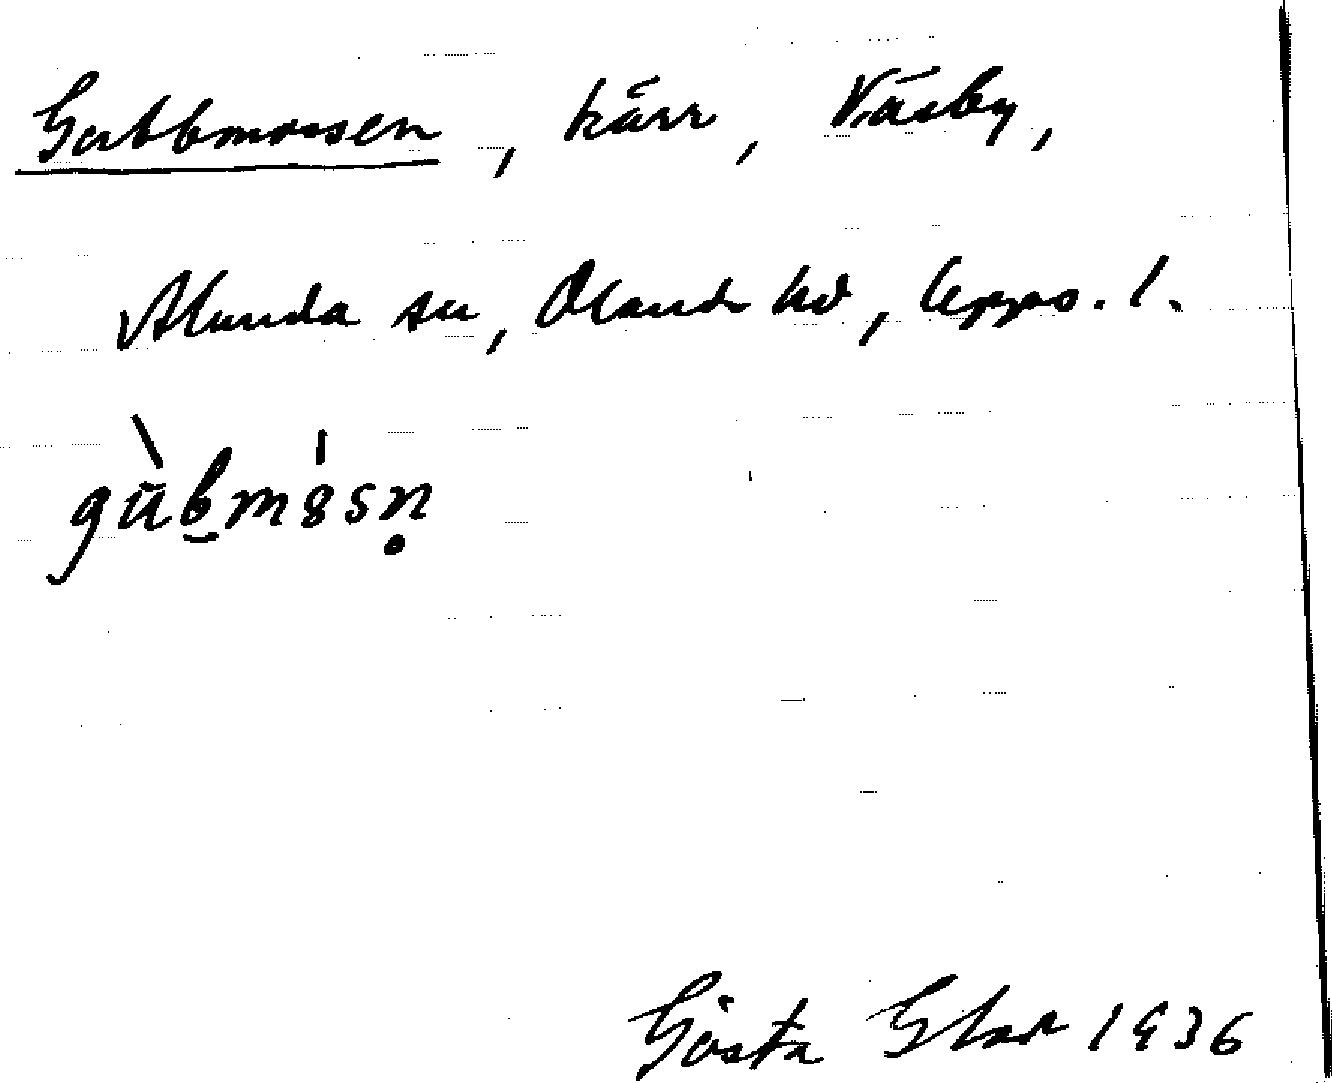 Gubbmossen, kärr, Väsby,
Alunda sn, Olands hd, Upps. l.
gùb̮mósṇ
Gösta 1936